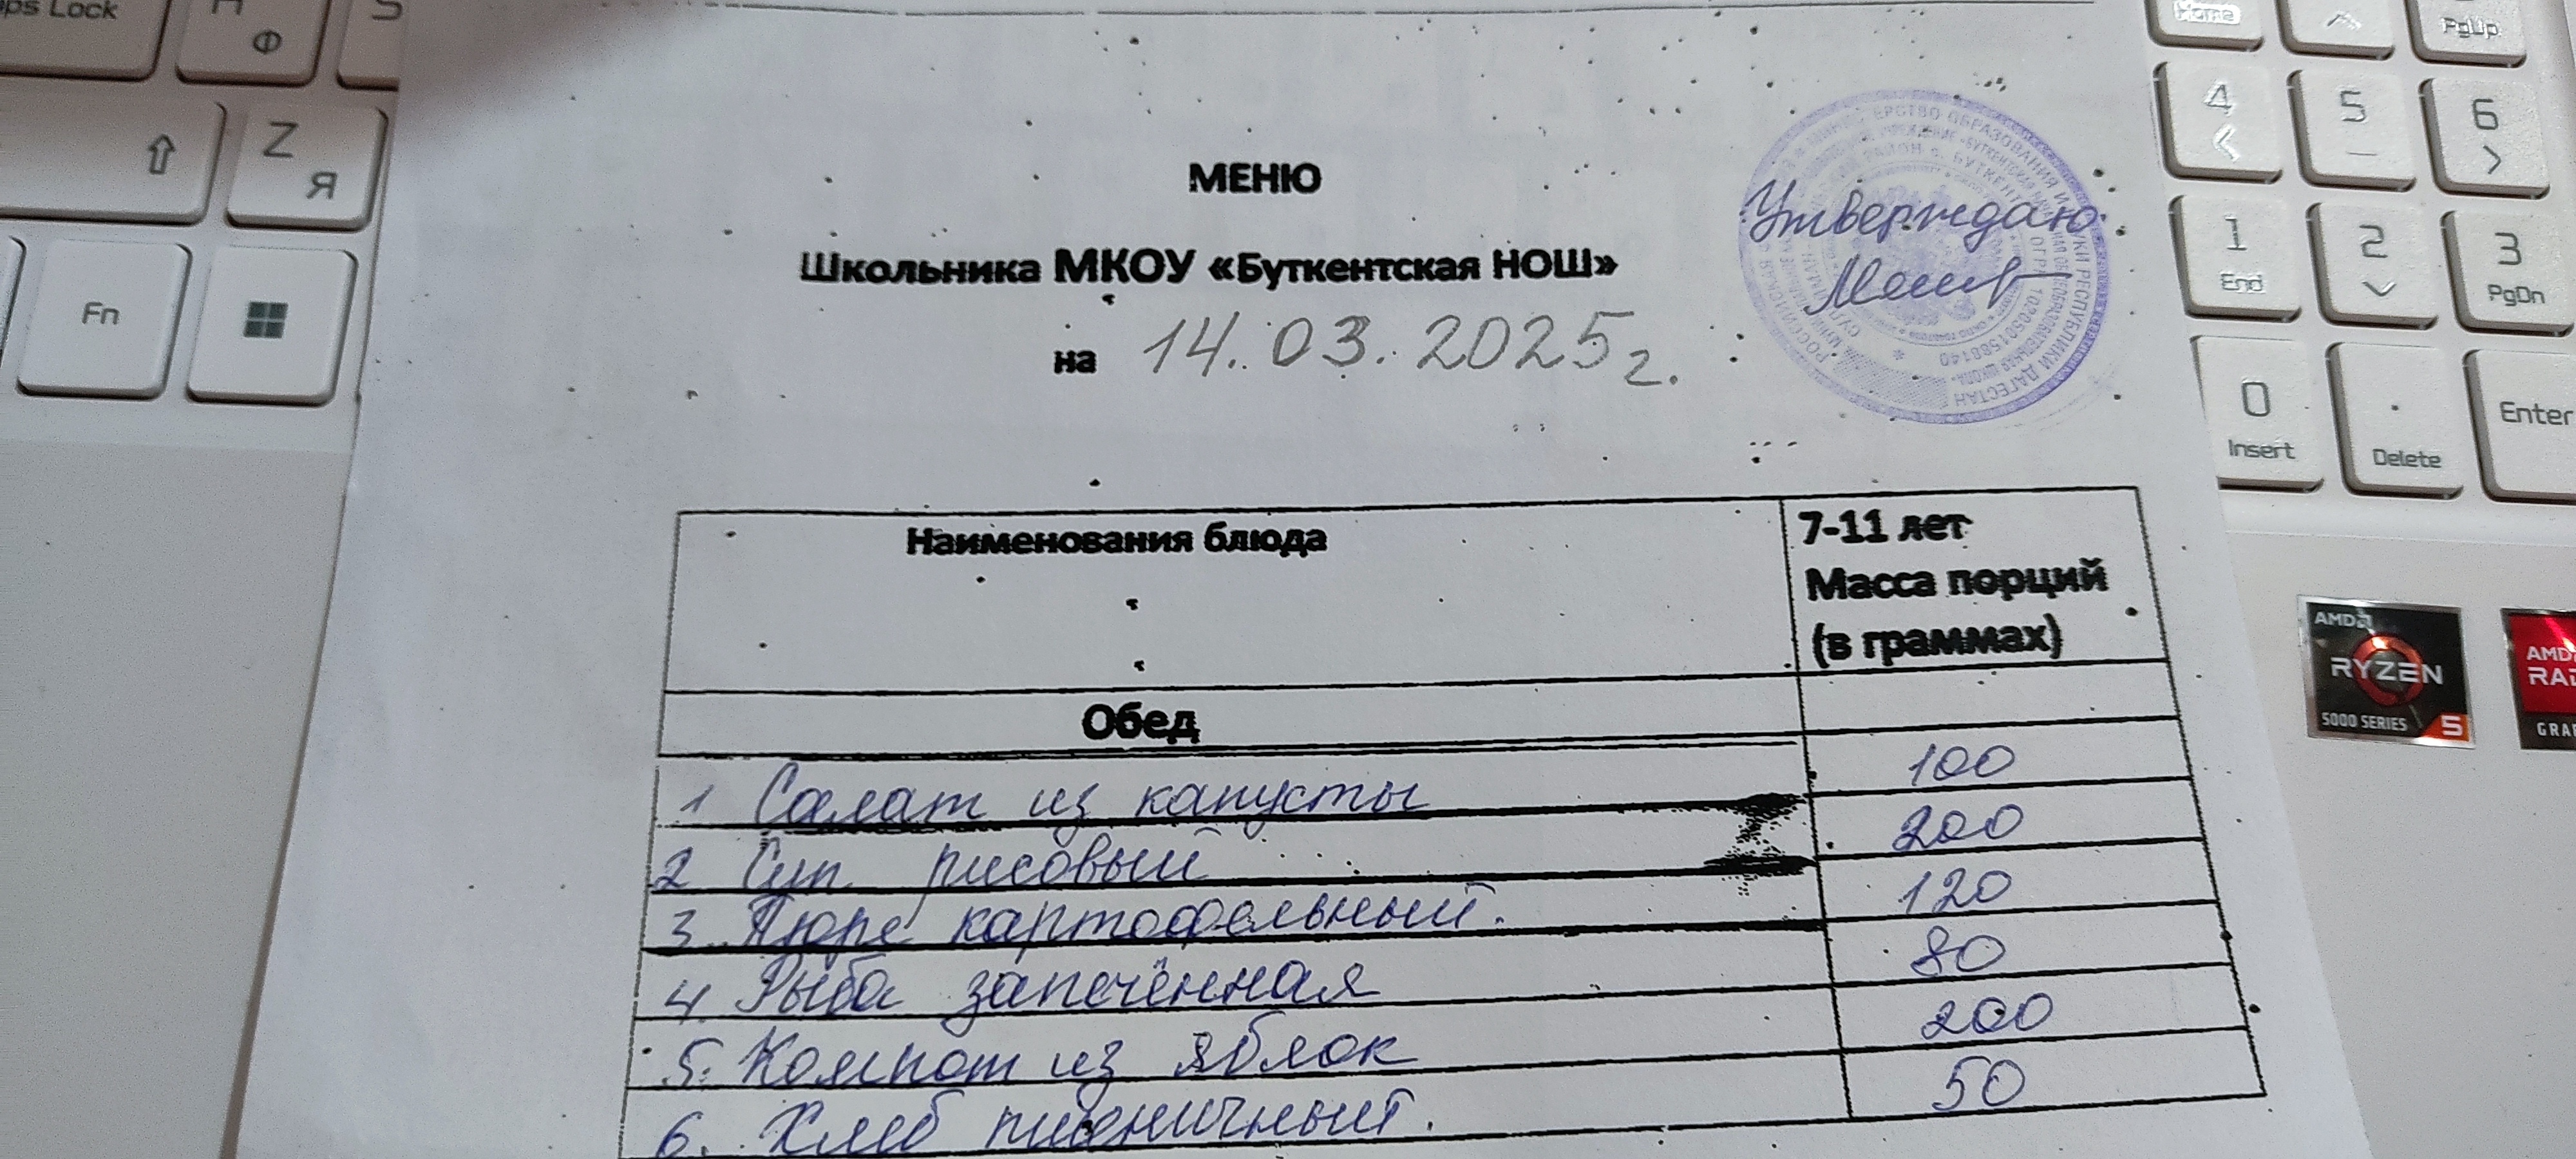 ps Lock
Ф
Z
Я
Fn
Home
PgUp
4
5
6
1
End
2
3
PgDn
0
Insert
.
Delete
Enter
МЕНЮ
Школьника МКОУ «Буткентская НОШ»
на 14.03.2025 г.
Утверждаю
Наименования блюда
7-11 лет
Масса порций
(в граммах)
Обед
1 Салат из капусты 100
2 Суп рисовый 200
3. Пюре картофельный. 120
4 Рыба запечённая 80
5. Компот из яблок 200
6. Хлеб пшеничный. 50
AMD
RYZEN
5000 SERIES 5
AMD